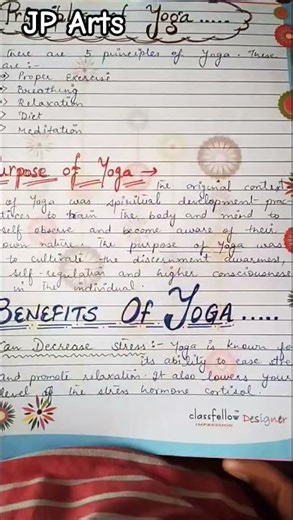 JP Arts
Principles of Yoga.....
There are 5 principles of Yoga. These
are :-
Proper Exercise
Breathing
Relaxation
Diet
Meditation
urpose of Yoga →
The original context
of Yoga was spiritual development prac-
tices to train the body and mind to
self observe and become aware of their
own nature. The purpose of Yoga was
to cultivate the discernment, awareness,
self-regulation and higher consciousness
in the individual.
BENEFITS OF YOGA.....
Can Decrease stress:- Yoga is known fo
its ability to ease stre
and promote relaxation. It also lowers your
level of the stress hormone cortisol.
classfellow Designer